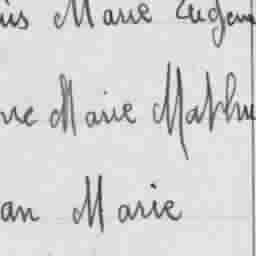 is Marie Eugen
ne Marie Mathu
an Marie